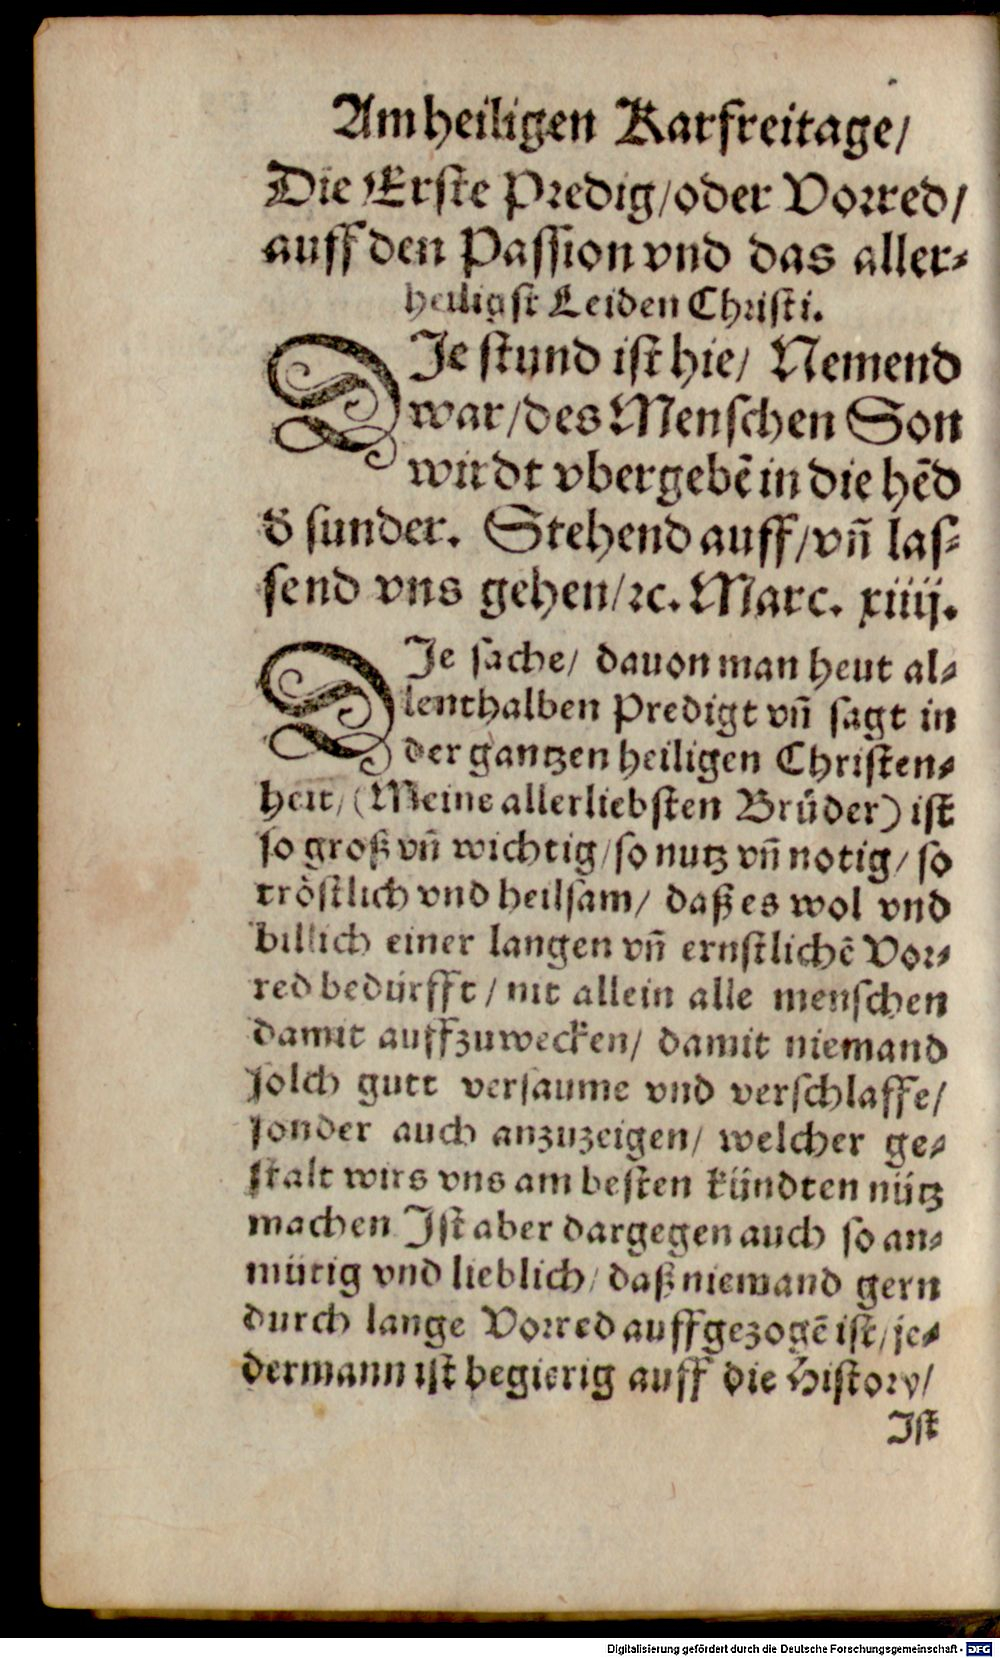 Am heiligen Karfreitage/
Die Erste Predig/oder Vorred/
auff den Passion vnd das aller-
heiligst Leiden Christi.
DIe stund ist hie/ Nemend
war/des Menschen Son
wirdt vbergebẽ in die hẽd
d' sunder. Stehend auff/vñ las-
send vns gehen/ꝛc. Marc. xiiij.
DIe sache/ dauon man heut al-
lenthalben Predigt vñ sagt in
der gantzen heiligen Christen-
heit/(Meine allerliebsten Brüder) ist
so groß vñ wichtig/so nutz vñ notig/ so
tröstlich vnd heilsam/ daß es wol vnd
billich einer langen vñ ernstlichẽ Vor-
red bedürfft/ nit allein alle menschen
damit auffzuwecken/ damit niemand
solch gutt versaume vnd verschlaffe/
sonder auch anzuzeigen/ welcher ge-
stalt wirs vns am besten kündten nütz
machen Ist aber dargegen auch so an-
mütig vnd lieblich/ daß niemand gern
durch lange Vorred auffgezogẽ ist/je-
dermann ist begierig auff die History/
Ist
Digitalisierung gefördert durch die Deutsche Forschungsgemeinschaft - DFG